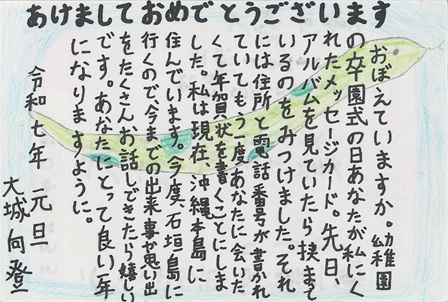 あけましておめでとうございます
おぼえていますか。幼稚園
の卒園式の日あなたが私にく
れたメッセージカード。先日、
アルバムを見ていたら挟まって
いるのをみつけました。それ
には住所と電話番号が書かれ
ていてもう一度あなたに会いた
くて年賀状を書くことにしま
した。私は現在、沖縄本島に
住んでいます。今度、石垣島に
行くので、今までの出来事や思い出
をたくさんお話しできたら嬉しい
です。あなたにとって良い一年
になりますように。
令和七年 元旦
大城 向澄